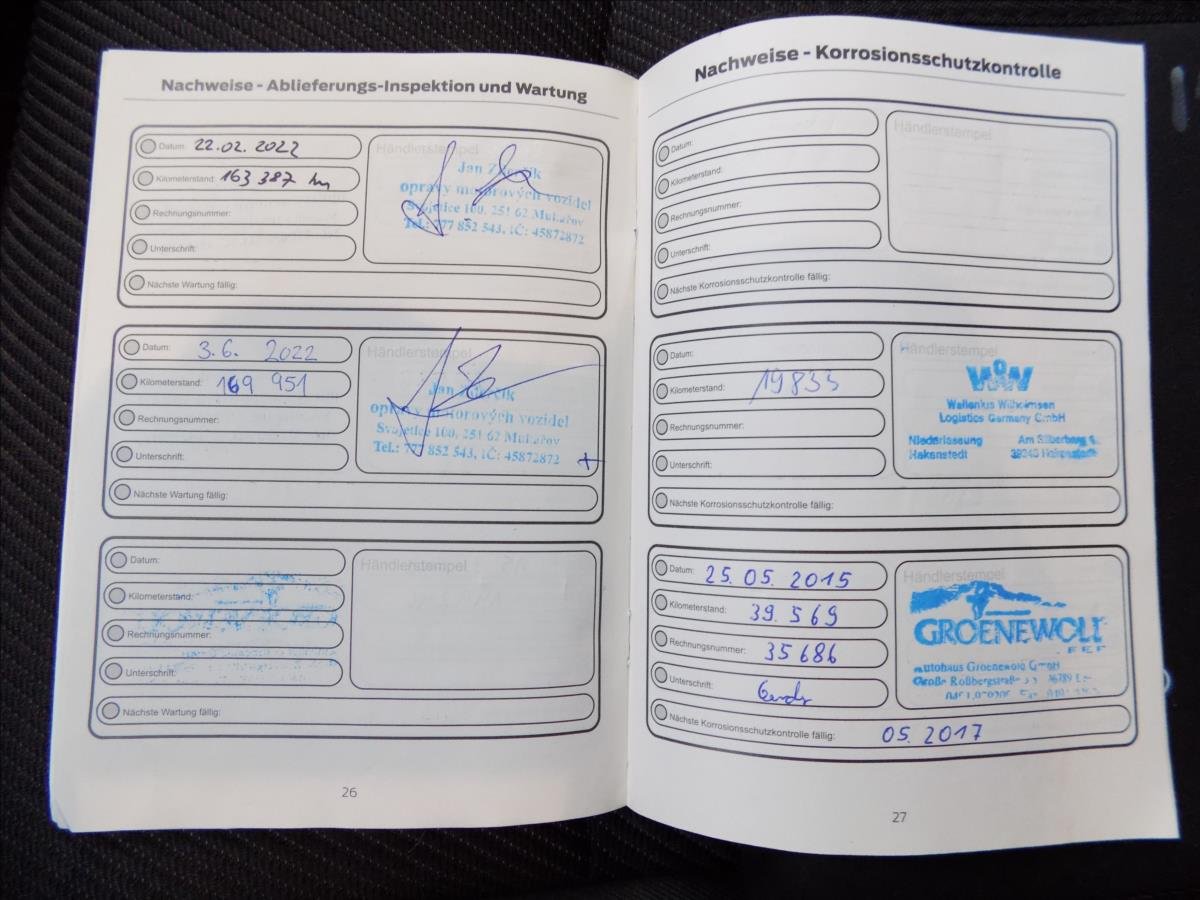 Nachweise - Ablieferungs-Inspektion und Wartung
Datum: 22.02.2022
Kilometerstand: 163 387 km
Rechnungsnummer:
Unterschrift:
Nächste Wartung fällig:
Händlerstempel
Jan
opravy motorových vozidel
Svojetice 100, 251 62 Mukařov
Tel.: 777 852 543, IČ: 45872872
Datum: 3.6. 2022
Kilometerstand: 169 951
Rechnungsnummer:
Unterschrift:
Nächste Wartung fällig:
Händlerstempel
Jan
opravy motorových vozidel
Svojetice 100, 251 62 Mukařov
Tel.: 777 852 543, IČ: 45872872
Datum:
Kilometerstand:
Rechnungsnummer:
Unterschrift:
Nächste Wartung fällig:
Händlerstempel
26
Nachweise - Korrosionsschutzkontrolle
Datum:
Kilometerstand:
Rechnungsnummer:
Unterschrift:
Nächste Korrosionsschutzkontrolle fällig:
Händlerstempel
Datum:
Kilometerstand: 19833
Rechnungsnummer:
Unterschrift:
Nächste Korrosionsschutzkontrolle fällig:
Händlerstempel
WW
Wallenius Wilhelmsen
Logistics Germany GmbH
Niederlassung Am Silberberg
Hakenstedt Hakenstedt
Datum: 25.05.2015
Kilometerstand: 39.569
Rechnungsnummer: 35686
Unterschrift:
Nächste Korrosionsschutzkontrolle fällig: 05.2017
Händlerstempel
GROENEWOLD
Autohaus Groenewold GmbH
Große Roßbergstraße
27